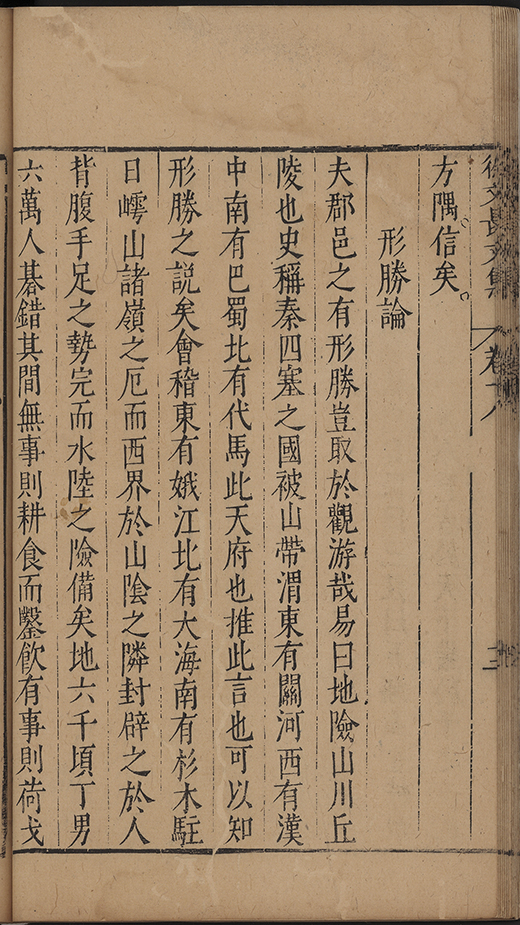 徐文長文集 卷十八 二
方隅信矣。
形勝論
夫郡邑之有形勝豈取於觀游哉易曰地險山川丘
陵也史稱秦四塞之國被山帶渭東有關河西有漢
中南有巴蜀北有代馬此天府也推此言也可以知
形勝之説矣會稽東有娥江北有大海南有杉木駐
日嶀山諸嶺之厄而西界於山陰之隣封辟之於人
背腹手足之勢完而水陸之險備矣地六千頃丁男
六萬人碁錯其間無事則耕食而鑿飲有事則荷戈